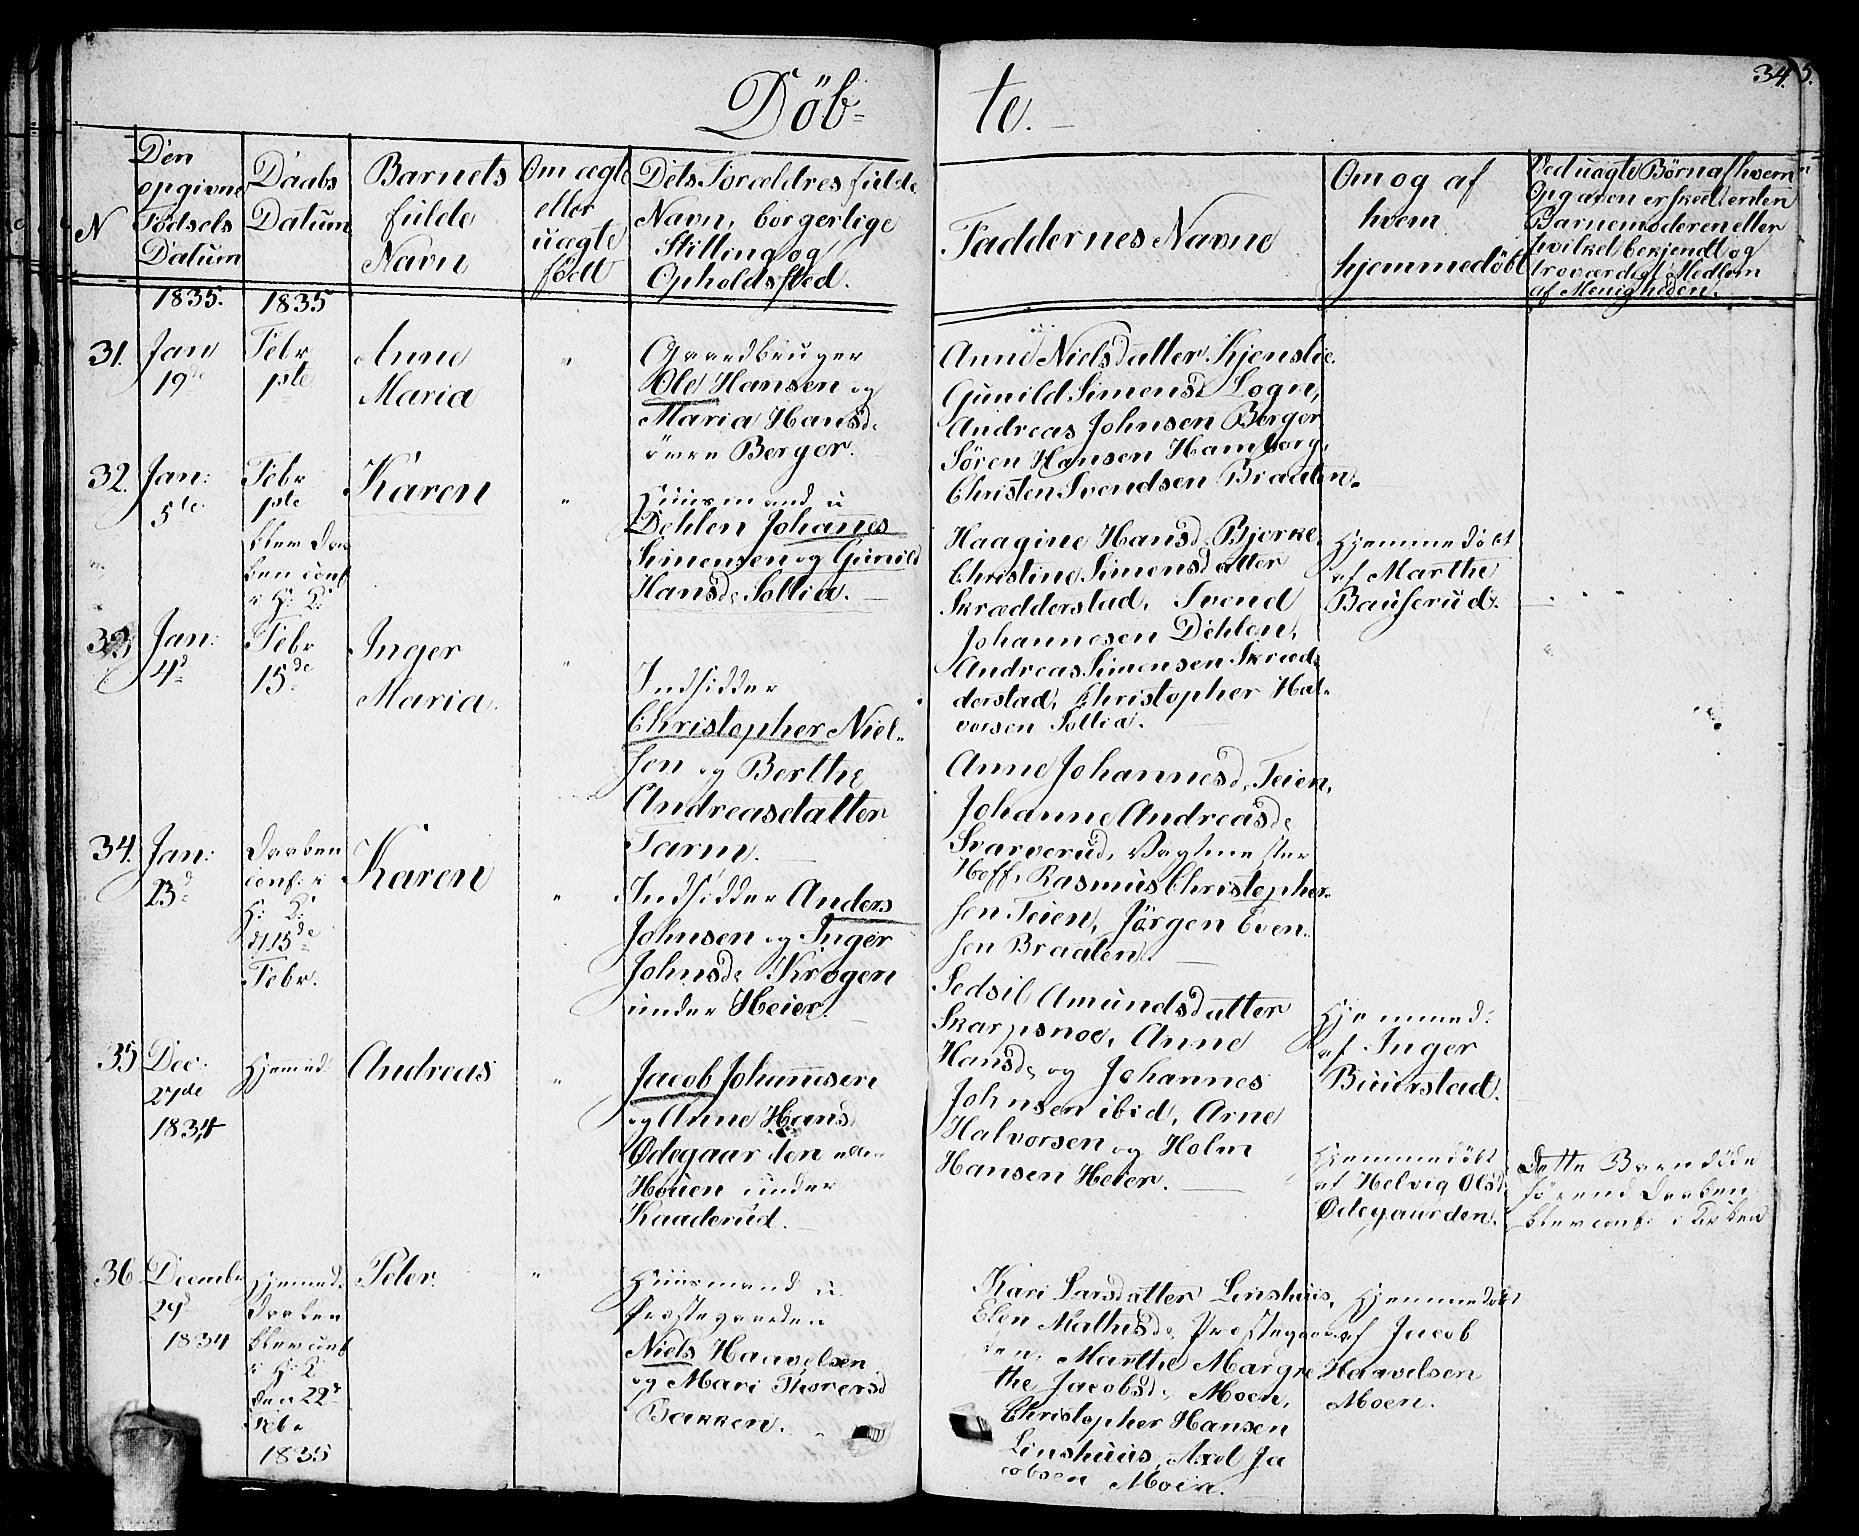 Döb=
te.
34.5.
N
Den
opgivne
Fødsels
Datum
Daabs
Datum
Barnets
fulde
Navn
Om ægte
eller
uægte
født
Dets Forældres fulde
Navn, borgerlige
Stilling og
Opholdssted.
Faddernes Navne
Om og af
hvem
hjemmedøbt
Ved uægte Børn af hvem
Opgaven er skeet, enten
Barnemoderen eller
hvilket bekjendt og
troværdigt Medlem
af Menigheden.
1835.
1835
31.
Jan
19de
Febr
1ste
Anne
Maria
"
Gaardbruger
Ole Hansen og
Maria Hansd.
övre Berger.
Anne Nielsdatter Kjenslie.
Gunild Simensd. Logn,
Andreas Johnsen Berger
Søren Hansen Hamborg,
Christen Svendsen Braaten.
32.
Jan:
5te
Febr
1ste
blev Daa
ben conf
i H: K:
Karen
"
Huusmand u
Dehlen Johanes
Simensen og Gunild
Hansd. Sollia.
Haagine Hansd. Bjerke.
Christine Simensdatter
Skrædderstad, Svend
Johannesen Dehlen,
Andreas Simensen Skræd-
derstad, Christopher Hal-
vorsen Sollia.
Hjemmedöbt
af Marthe
Bauserud.
33
Jan:
4d
Febr
15de
Inger
Maria.
"
Indsidder
Christopher Niel-
sen og Berthe
Andreasdatter
Tarm.
Anne Johannesd. Teien,
Johanne Andreasd.
Skarverud, Vagtmester
Hoff, Rasmus Christopher-
sen Teien, Jörgen Even-
sen Braaten.
34.
Jan:
13d
Daaben
conf: i
H: K:
d. 15de
Febr.
Karen
"
Indsidder Anders
Johnsen og Inger
Johnsd. Krogen
under Heier.
Sedsil Amundsdatter
Skarpsnoe, Anne
Hansd. og Johannes
Johnsen ibid, Arne
Halvorsen og Holm
Hansen Heier.
Hjemmed:
af Inger
Buurstad.
35
Dec:
27de
1834
Hjemmed:
Andreas
"
Jacob Johannsen
og Anne Hans
Ødegaarden
Houen under
Kaaderud.
Hjemmedöbt
af Helvig Olsd.
Ødegaarden.
Dette Barn døde
førend Daaben
blev conf: i Kirken
36
Decembr
29d
1834
Hjemmed.
Daaben
blev conf
i H: K
den 22d
Feb.
1835
Peter
"
Huusmand u.
Præstegaarden
Niels Haavelsen
og Mari Thorersd
Bakken.
Kari Larsdatter Linshuus,
Elen Mathisd. Præstegaar-
den. Marthe Margre
the Jacobsd. Moen,
Christopher Hansen
Linshuus, Axel Ja
cobsen Moen.
Hjemmedöbt
af Jacob
Haavelsen
Moen.